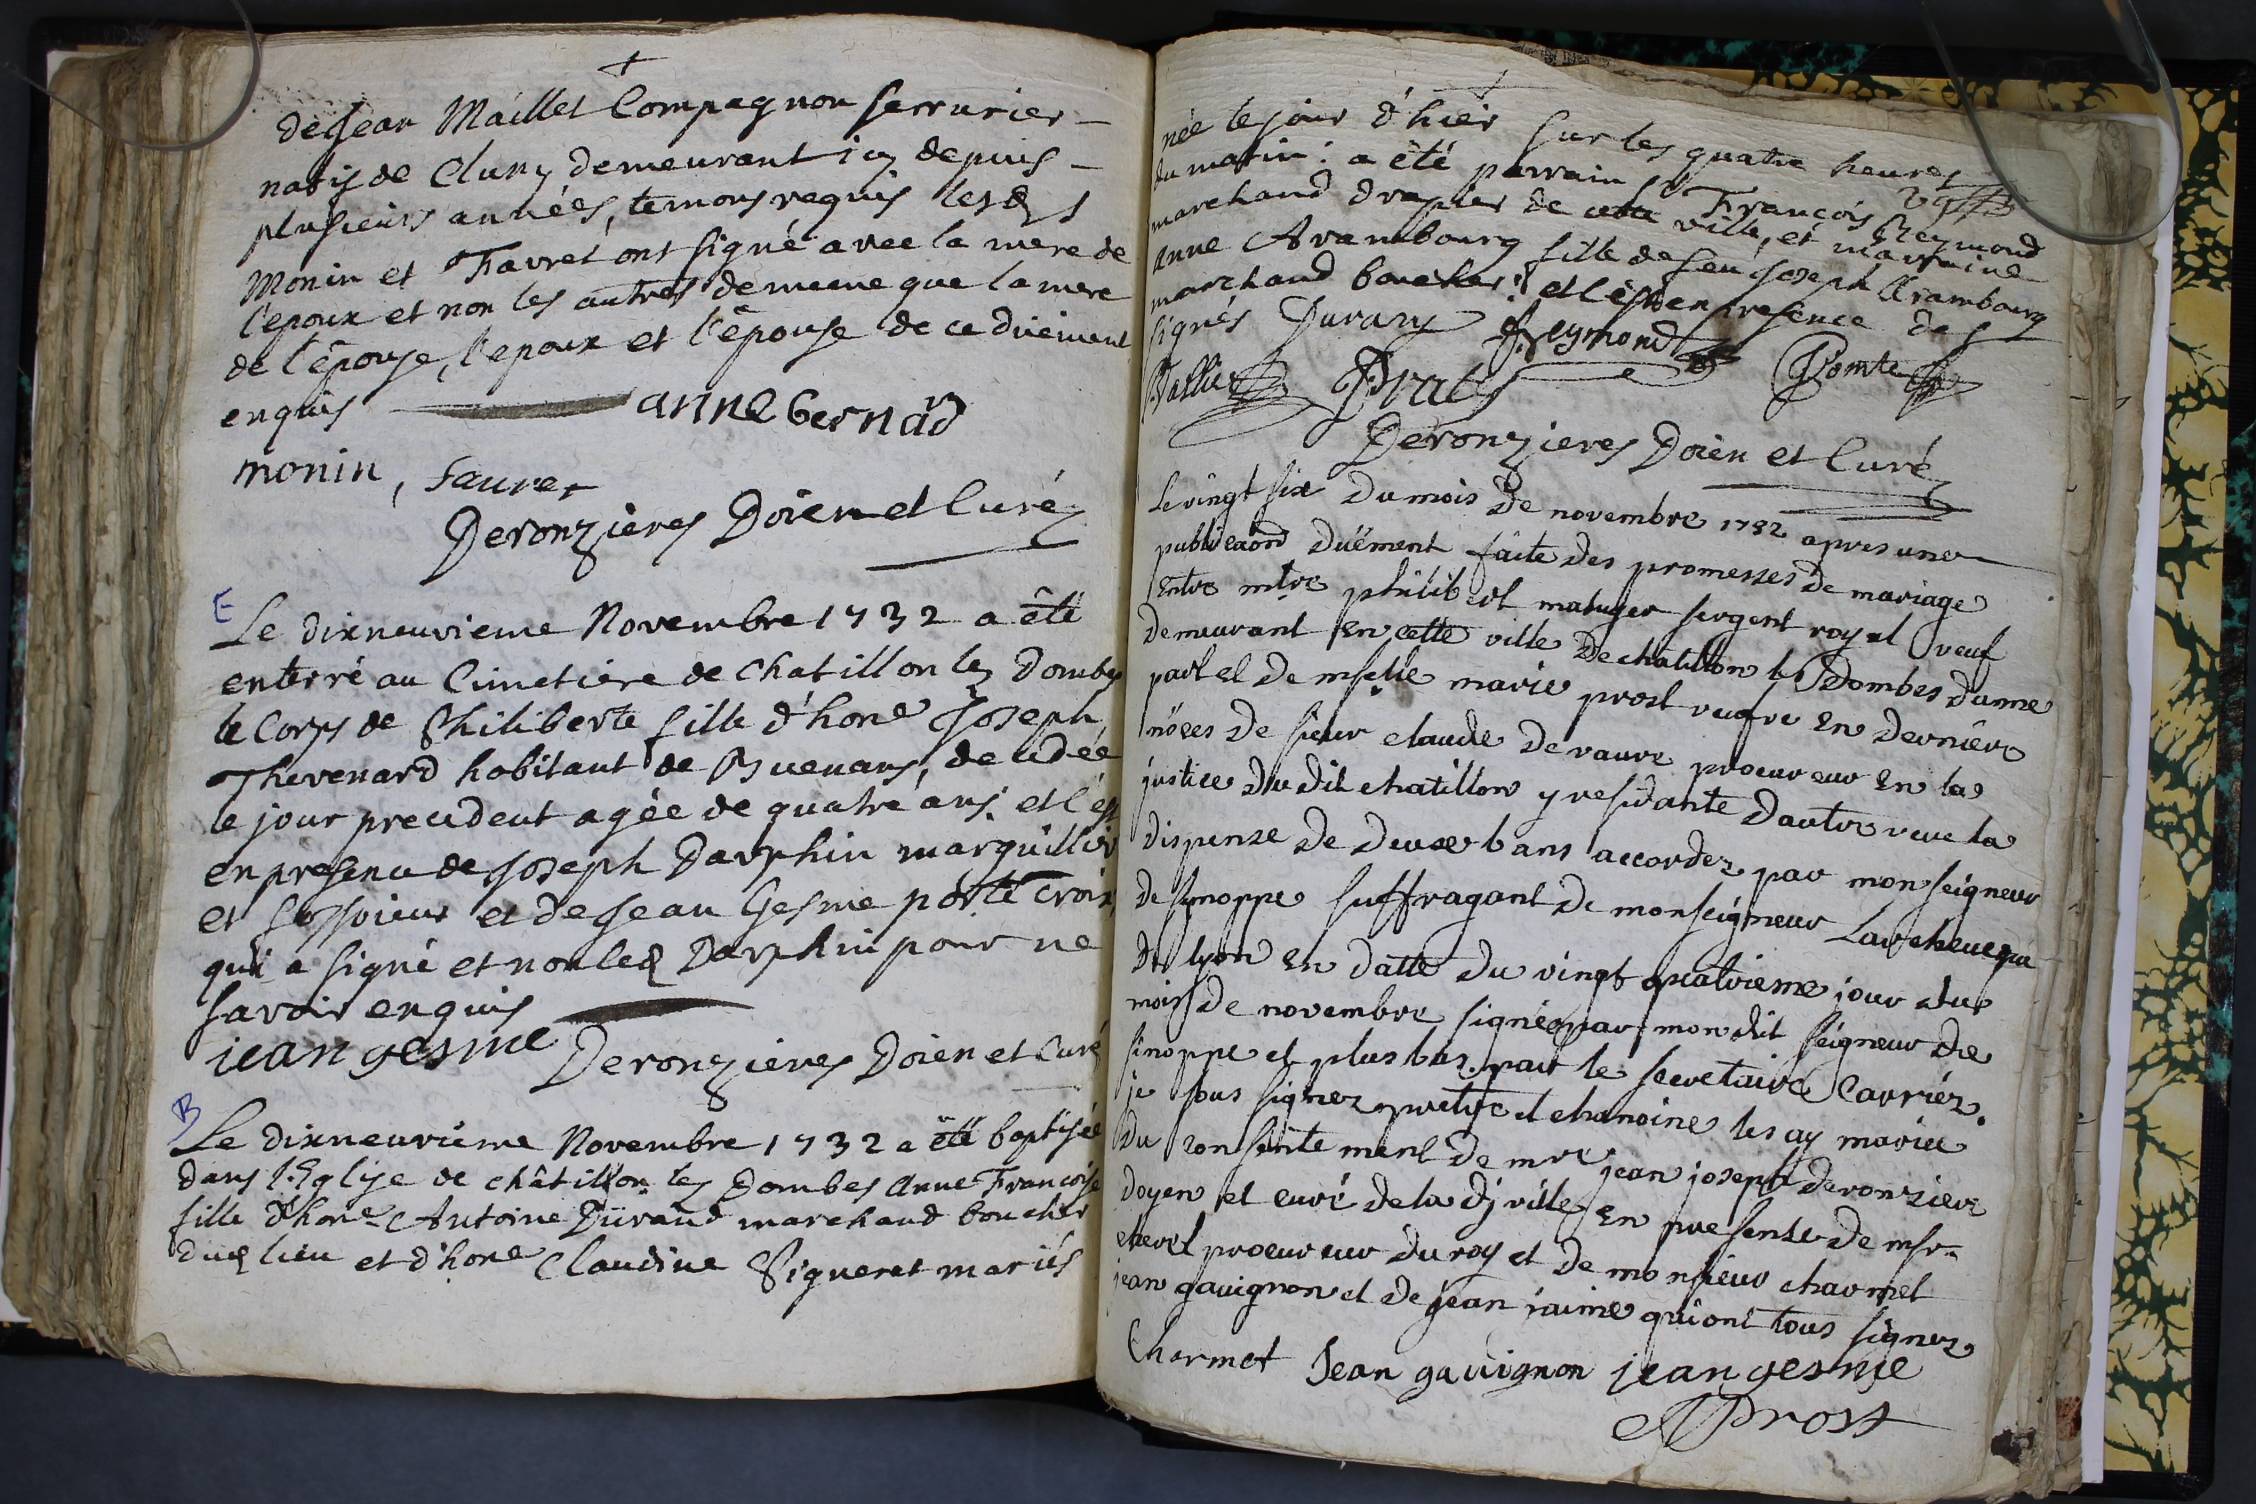 de Jean Maillet Compagnon serrurier
natif de Cluny demeurant icy depuis
plusieurs années, temoins requis lesds
Monin et Favret ont signé avec la mere de
l'epoux et non les autres de meme que la mere
de l'épouse, l'epoux et l'épouse de ce duëment
enquis anne bernard
monin, faure
Deronzieres Doien et Curé
E
Le dixneuvieme Novembre 1732 a été
enterré au Cimetiere de Chatillon les Dombes
le Corps de Philiberte fille d'hone Joseph
Thevenard habitant de Buenans, decedée
le jour precedent agée de quatre ans. et l'est
en presence de Joseph Dauphin marguillier
et fossoieur et de Jean Gesme porte croix,
qui a signé et non led Dauphin pour ne
savoir enquis
jean gesme Deronzieres Doien et Curé
B
Le dixneuvieme Novembre 1732 a été baptisée
dans l'Eglise de châtillon les Dombes Anne Françoise
fille d'hone Antoine Durand marchand boucher
dud lieu et d'hone Claudine Vigneret mariés
née le jour d'hier sur les quatre heures
du matin: a été parrain Sr François Reymond
marchand drapier de cette ville, et marraine
anne Arambourg fille de feu Joseph Arambourg
marchand boucher: et l'est en presence des
signés Durany Reymond
Vallier Prats Pomte
Deronzieres Doien et Curé
Le vingt six du mois de novembre 1732 apres une
publicaond duëment faite des promesses de mariage
Entre mtre philibert matuger sergent royal veuf
demeurant en cette ville de chatillon les Dombes dunne
part et de mselle marie prost veuve en derniere
nöces de sieur claude devaure procureur en la
justice du dit chatillon y residante dautre veue la
dispense de deuxe bans accordez par monseigneur
de sinoppe suffragant de monseigneur Larcheveque
de lyon en datte du vingt quatrieme jour du
mois de novembre signé par mondit seigneur de
sinoppe et plus bas par le secretaire Carriéz.
je sous signez pretre et chanoine les ay marieé
du consentement de mre jean joseph deronziere
doyen et curé de la dj ville en presense de msr
cherel procureur du roy et de monsieur charmet
jean gauignon et de jean jaime qui ont tous signez
Charmet Jean gauignon jean gesme
Prost